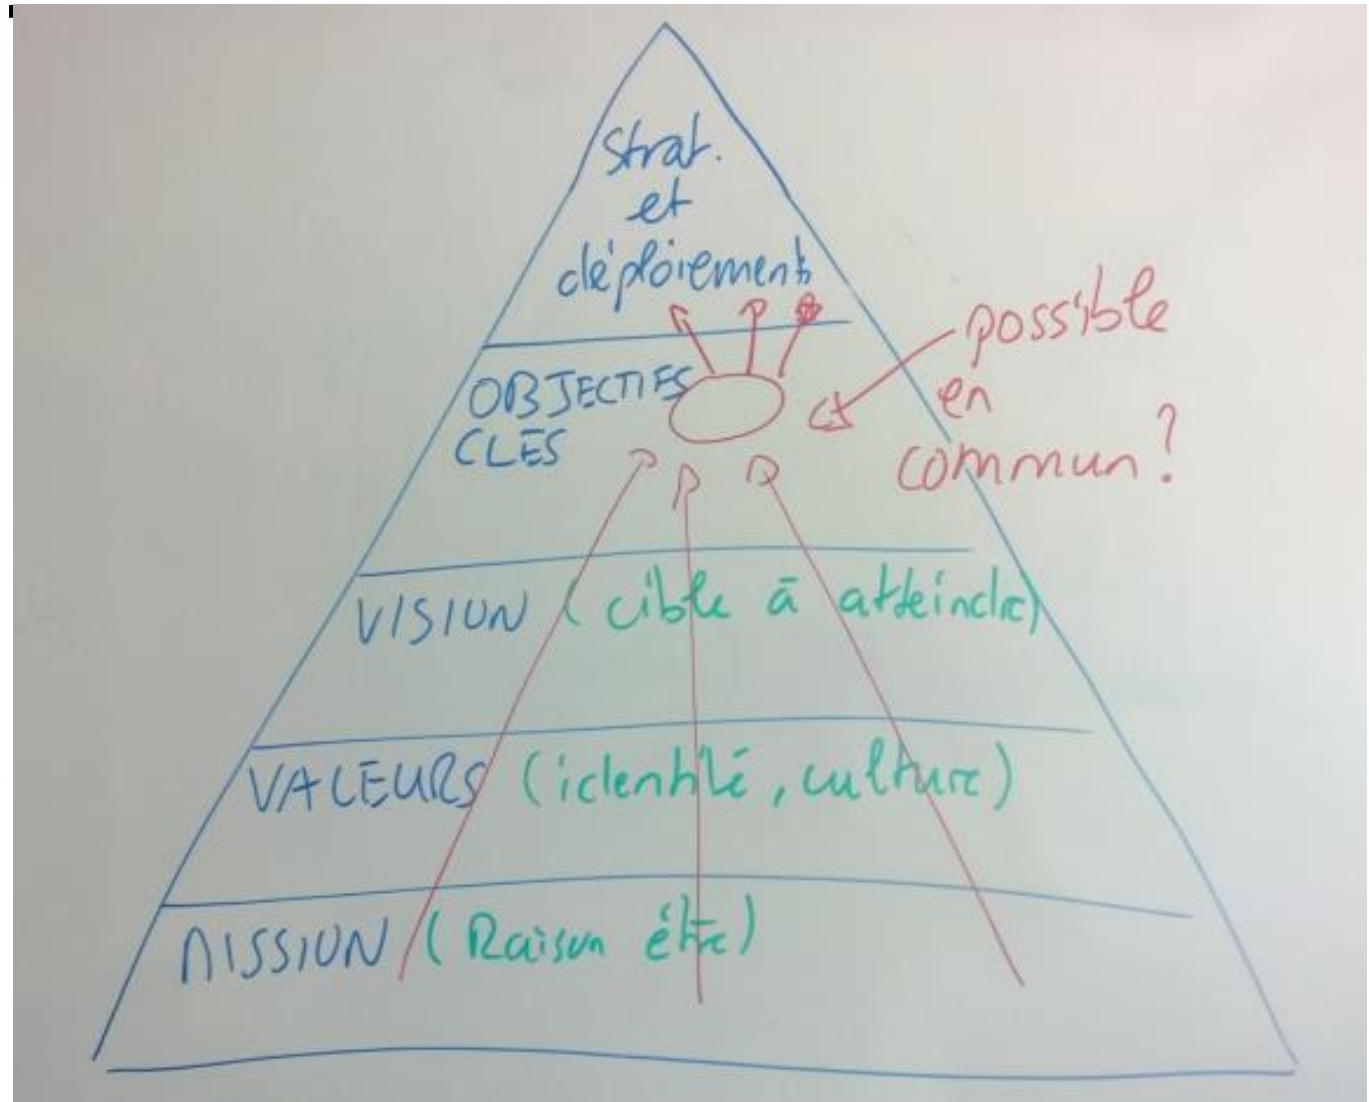 Strat.
et
déploiement
OBJECTIFS
CLÉS
possible
en
commun ?
VISION (cible à atteindre)
VALEURS (identité, culture)
MISSION (Raison être)